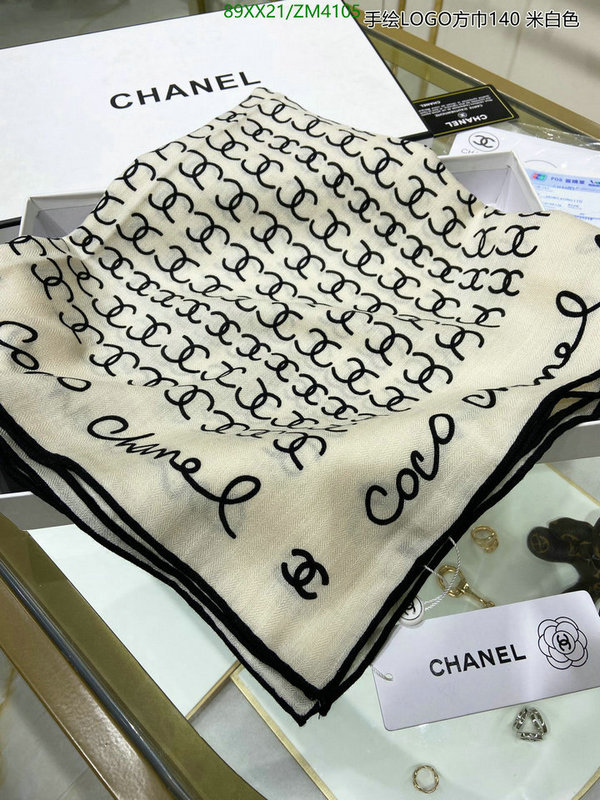 89XX21/ZM4105
手绘LOGO方巾140 米白色
CHANEL
CHANEL
coco chanel
coco chanel
CHANEL